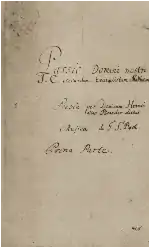 Passio Domini nostri
J. C. secundum Evangelistam Matthaeum
Poesia per Dominum Henrici
alias Picander dictus
Musica di J. S. Bach
Prima Parte.